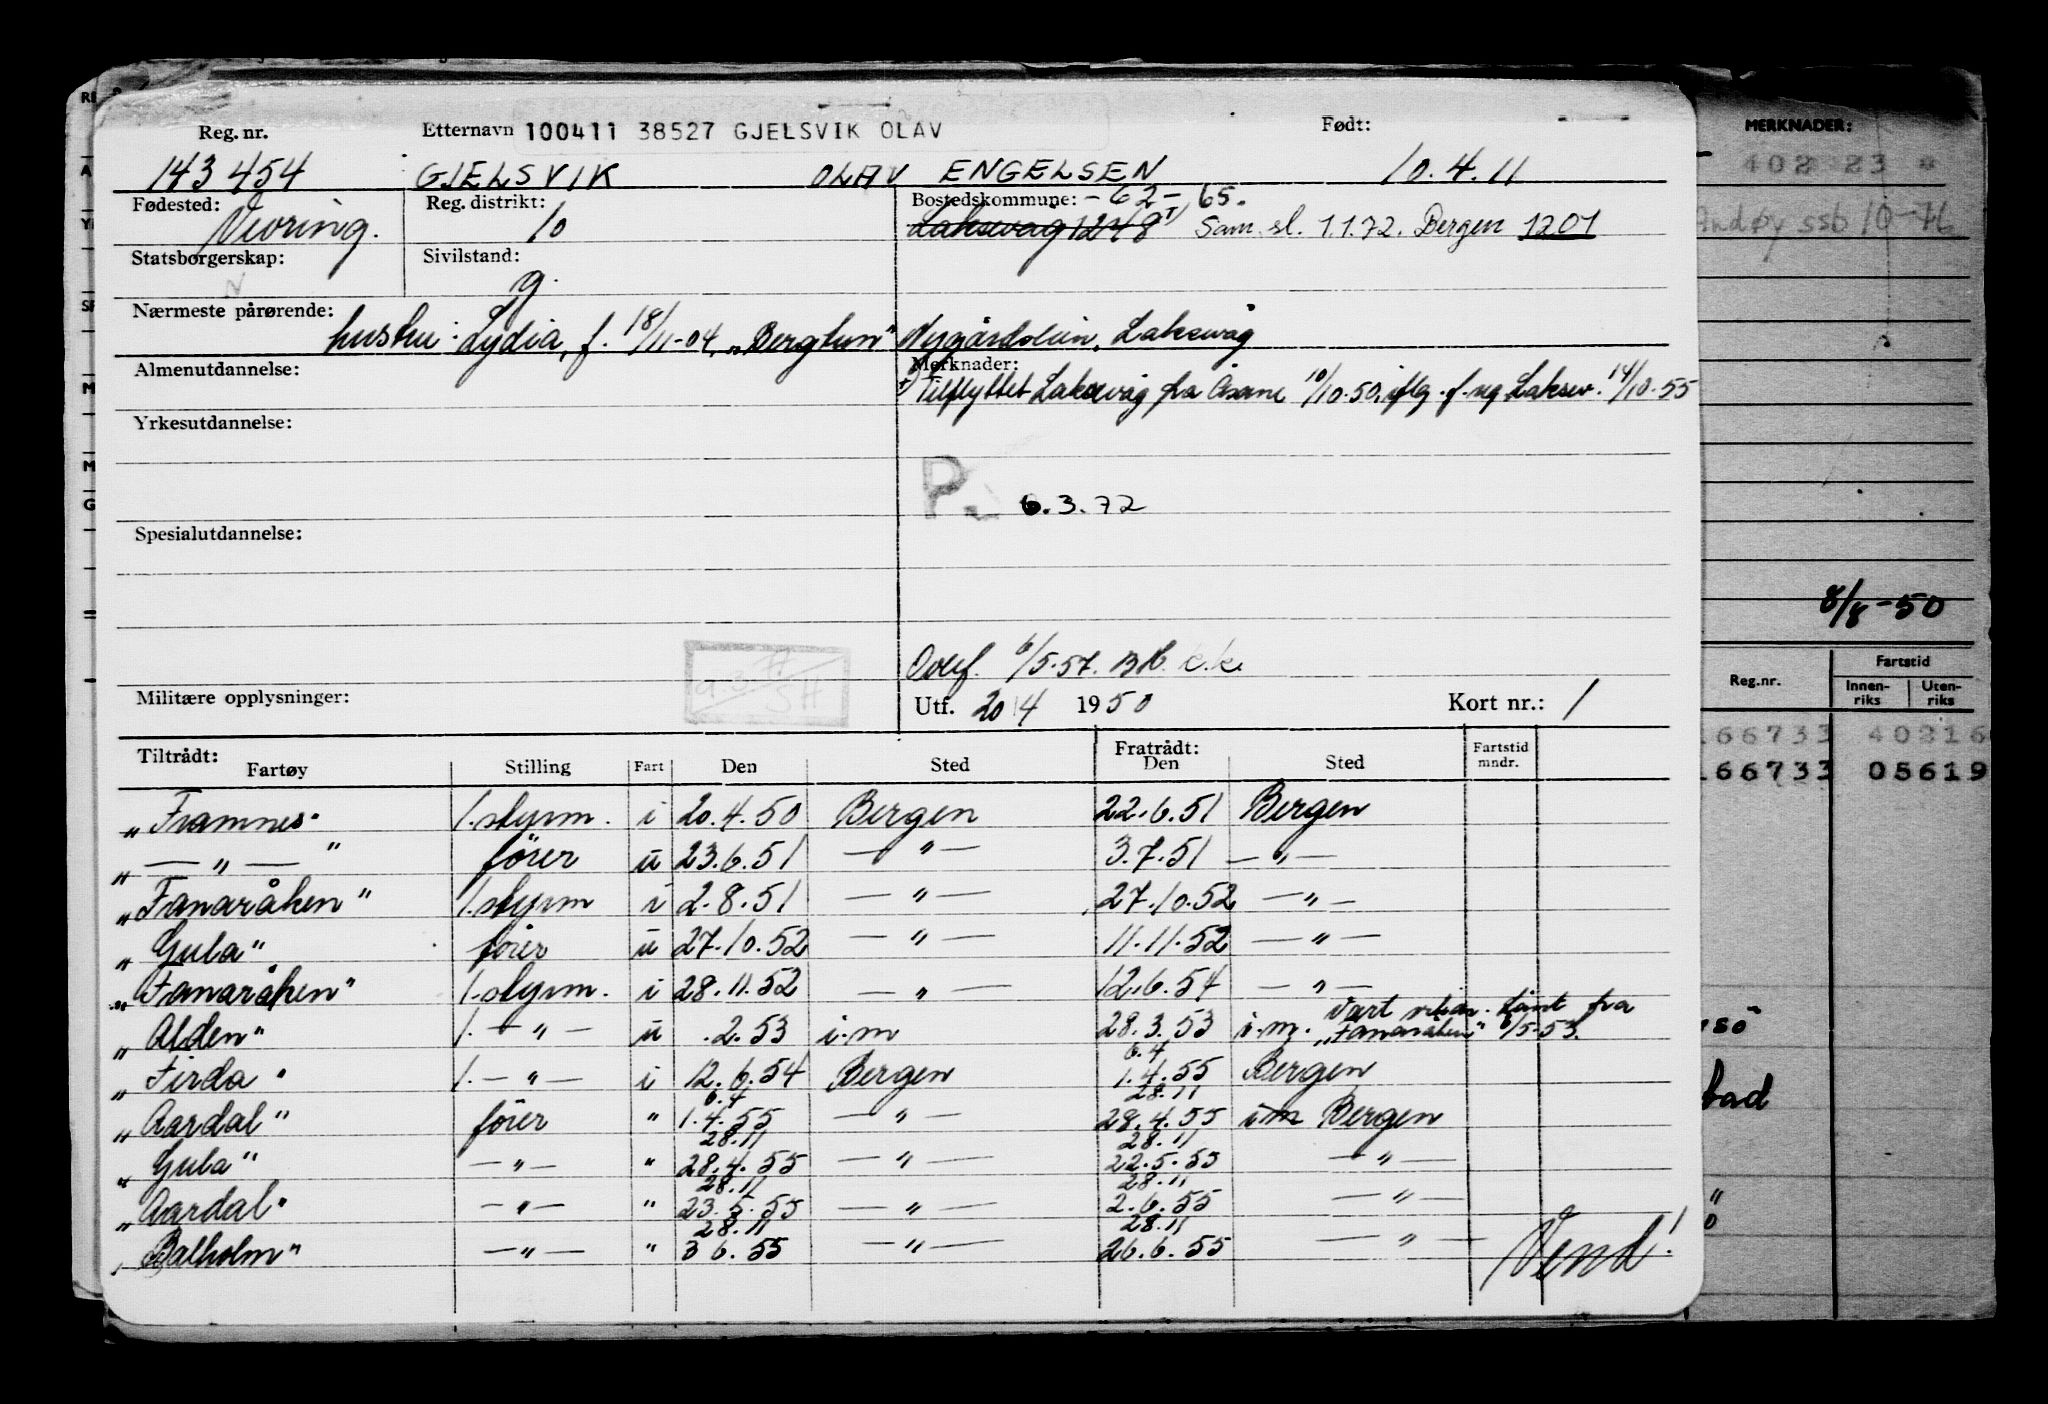 Reg. nr. Etternavn 100411 38527 GJELSVIK OLAV Født:
143454 GJELSVIK OLAV ENGELSEN 10.4.11
Fødested: Vevring. Reg. distrikt: 10 Bostedskommune: -62-, 65.
Laksevåg 1248 Sam. sl. 1.1.72. Bergen 1201
Statsborgerskap: N Sivilstand: g.
Nærmeste pårørende: hustru: Lydia, f. 18/11-04, "Bergtun" Nygårdsleien, Laksevåg
Almenutdannelse: Merknader:
Tilflyttet Laksevåg fra Åsane 10/10-50, iflg. f.reg Laksev. 14/10-55
Yrkesutdannelse:
P. 6.3.72
Spesialutdannelse:
Overf. 6/5-57. k.k.
Militære opplysninger: Utf. 20/4 1950 Kort nr.: 1
Tiltrådt: Fratrådt: Fartstid
Fartøy Stilling Fart Den Sted Den Sted mndr.
"Framnes" 1. styrm. i 20.4.50 Bergen 22.6.51 Bergen
" — " — " fører u 23.6.51 — " — 3.7.51 — " —
"Fanaråken" 1. styrm i 2.8.51 — " — 27.10.52 — " —
"Gula" fører u 27.10.52 — " — 11.11.52 — " —
"Fanaråken" 1. styrm. i 28.11.52 — " — 12.6.54 — " —
vært lånt fra
"Alden" 1. — " — u .2.53 i.m 28.3.53 i.m. "Fanaråken" 6/5-53.
6.4
"Firda" 1. — " — i 12.6.54 Bergen 1.4.55 Bergen
6.4 28.11
"Aardal" fører " 1.4.55 — " — 28.4.55 i.m Bergen
28.11 28.11
"Gula" — " — " 28.4.55 — " — 22.5.55 — " —
28.11 28.11
"Aardal" — " — " 23.5.55 — " — 2.6.55 — " —
28.11 28.11
"Balholm" — " — " 3 6.55 — " — 26.6.55 — " —
Vend!
MERKNADER:
402 23 "
Andøy ssb 10-76
8/8-50
Reg.nr. Fartstid
Innen-riks Uten-riks
166733 40216
166733 05619